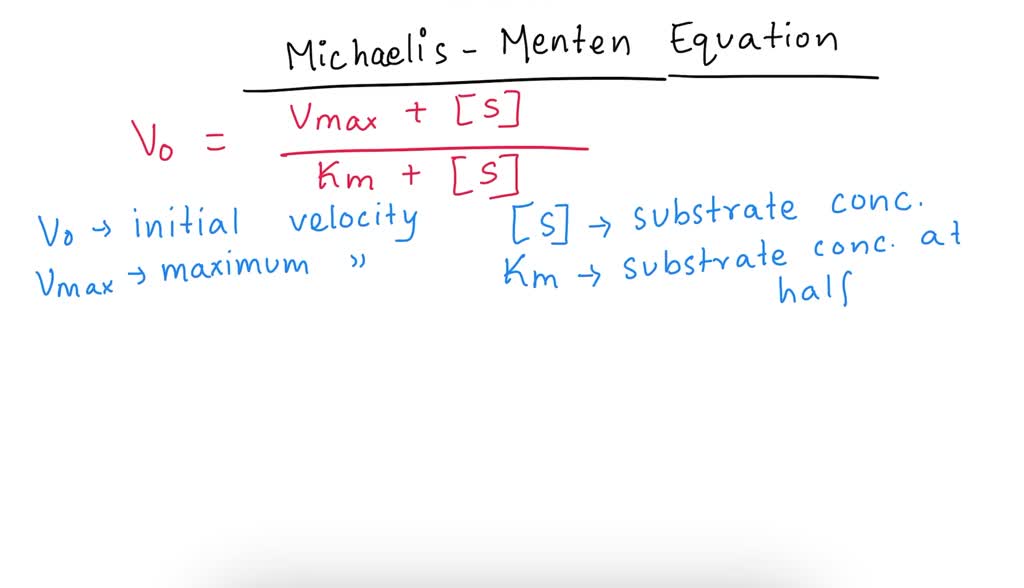 Michaelis - Menten Equation
V₀ = Vmax + [S]
Km + [S]
V₀ → initial velocity
Vmax → maximum "
[S] → substrate conc.
Km → substrate conc. at
half